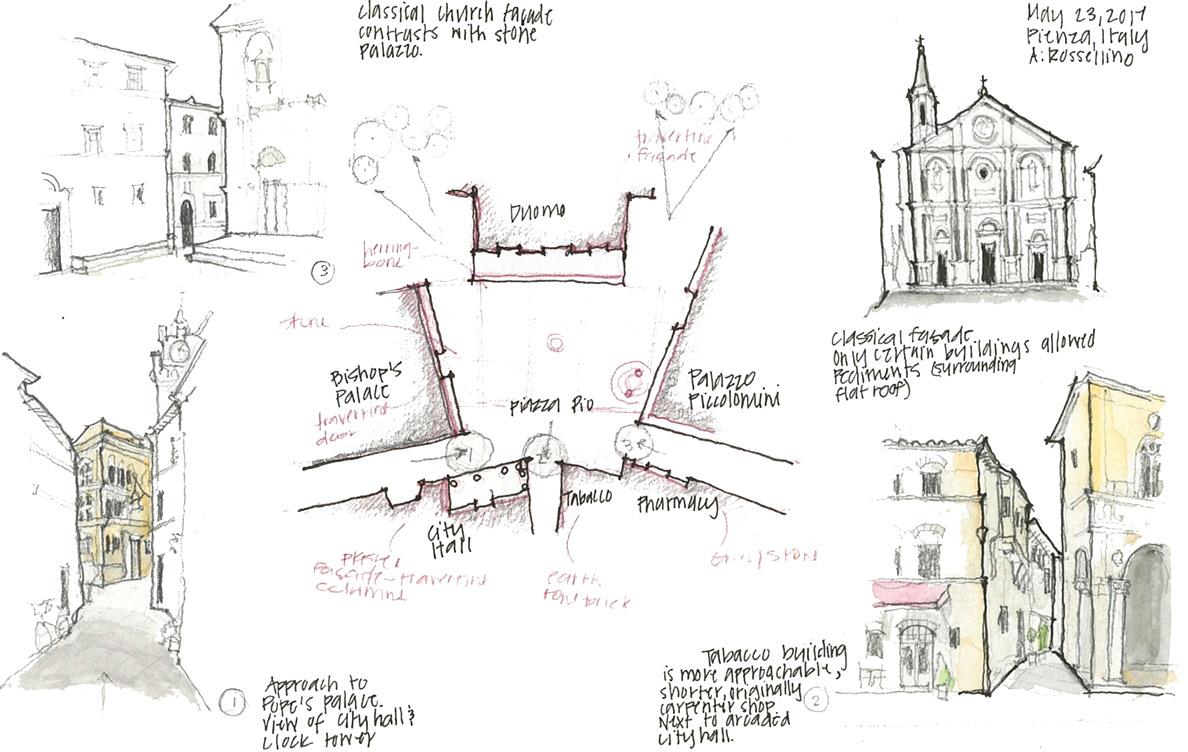 classical church façade
contrasts with stone
palazzo.
May 23, 2017
Pienza, Italy
A: Rossellino
travertine
façade
Duomo
herring-
bone
3
Classical façade
only certain buildings allowed
Pediments (surrounding
flat roof)
Bishop's
Palace
travertine
door
Piazza Pio
Palazzo
Piccolomini
1
2
3
City
Hall
Tabacco
Pharmacy
travertine
columns
earth
brick
stone
1
Approach to
Pope's palace.
View of city hall &
clock tower
Tabacco building
is more approachable,
shorter, originally
carpenter shop.
Next to arcaded
city hall.
2